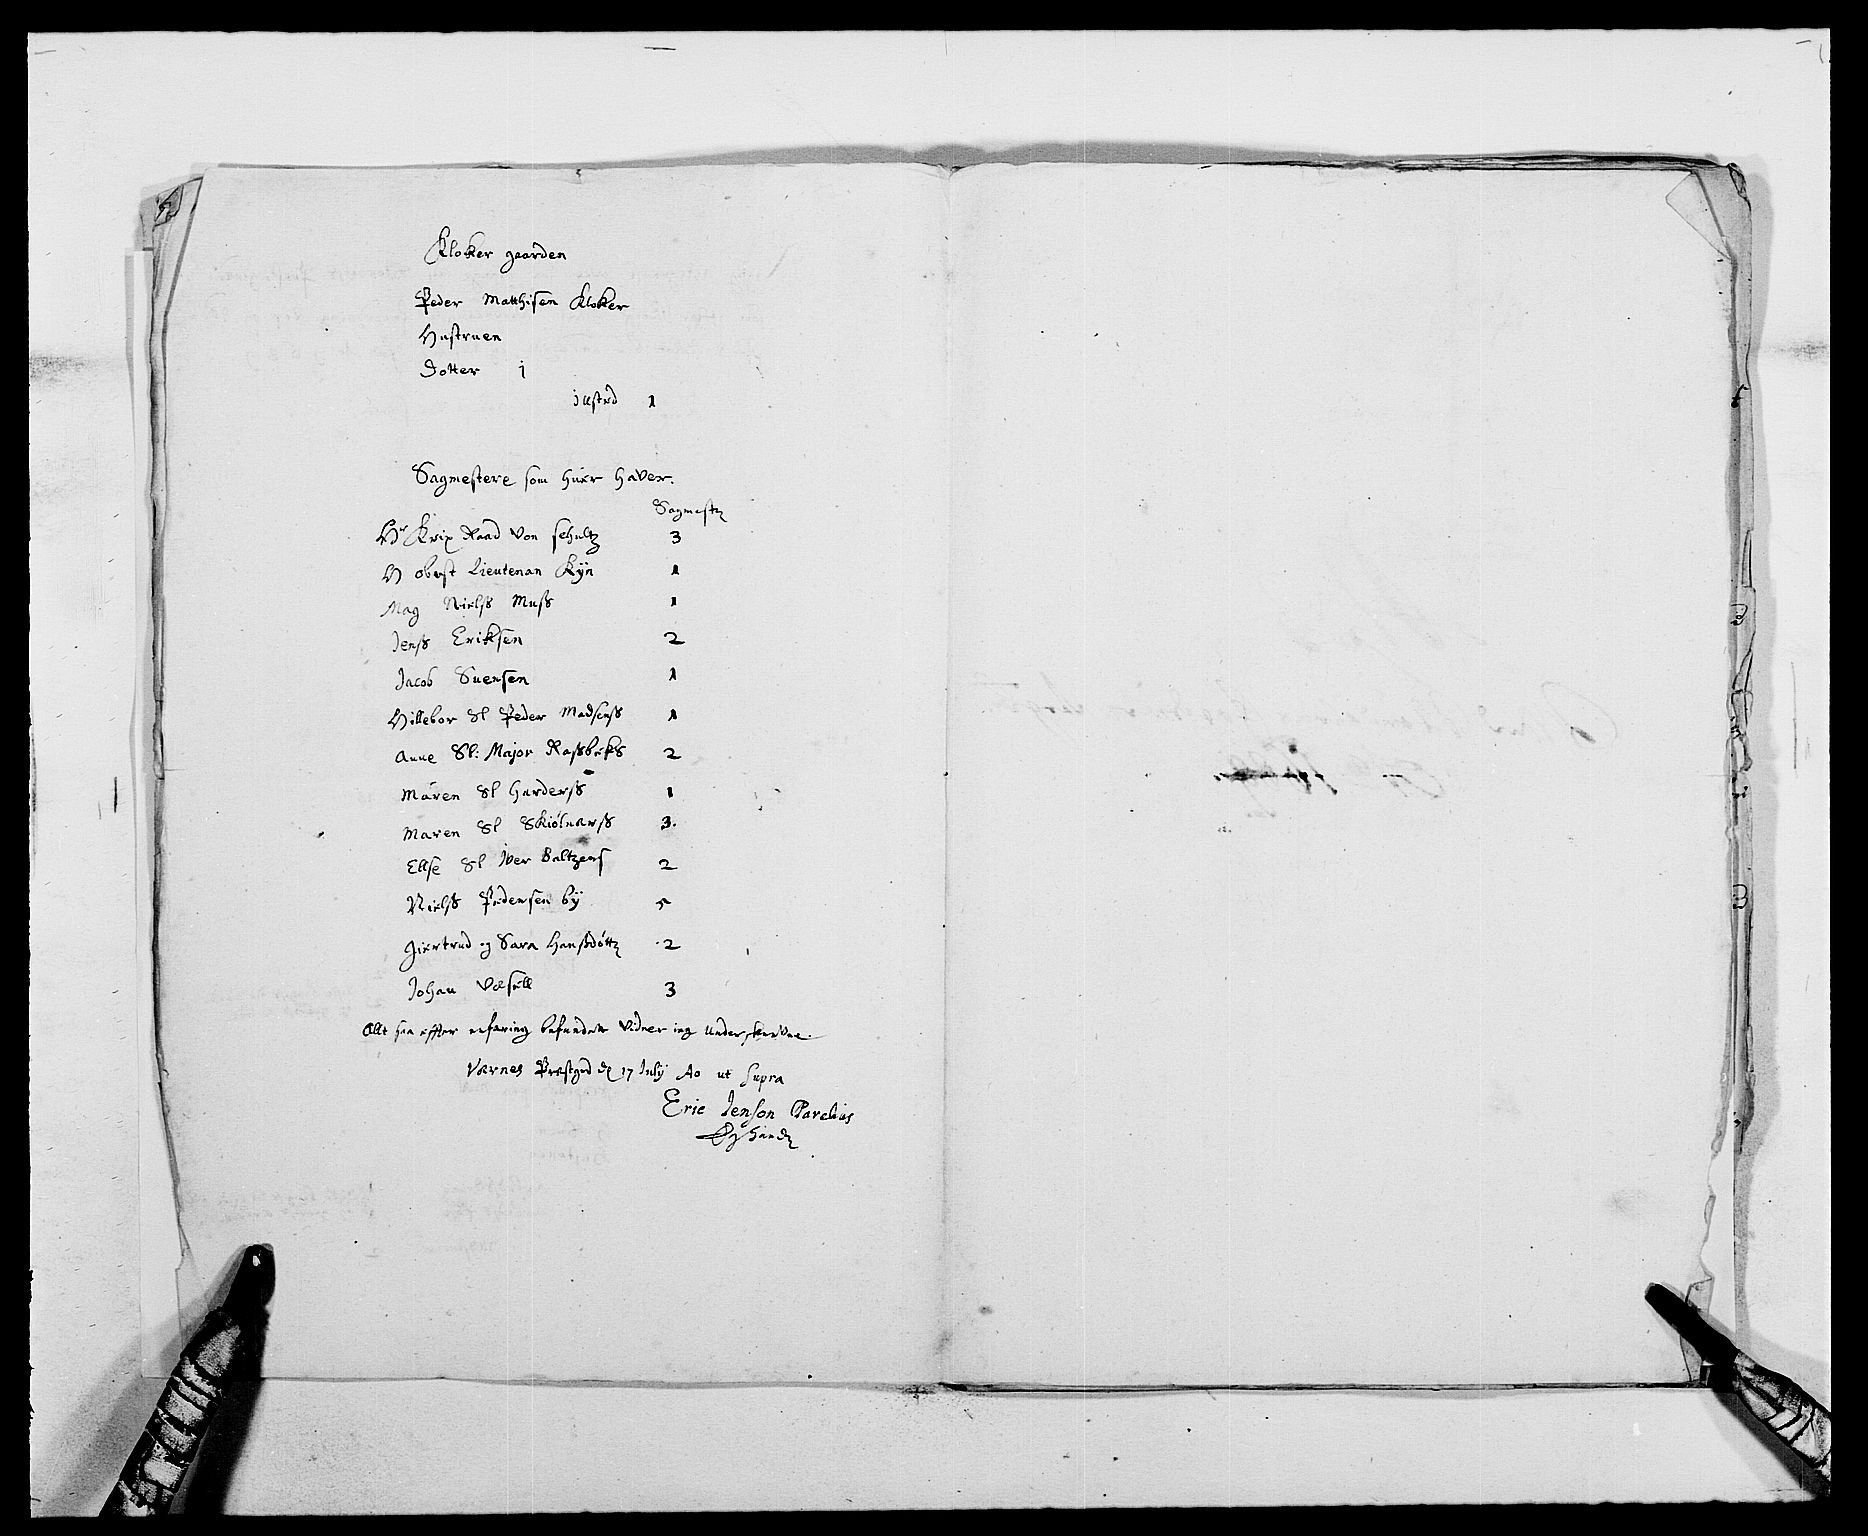 Kloker gaarden
Peder Matthisen Kloker
Hustruen
Dotter j
Ildsted 1
Sagmestere som huer haver.
Sagmestr
Hr Krix Raad von schultz 3
H oberst Lieutenan Kÿn 1
Mag Nielss Muss 1
Jenss Eriksen 2
Jacob Suensen 1
Hillebor Sl Peder Madsenss 1
Anne Sl: Major Rossbeks 2
Maren Sl Harderss 1
Maren Sl Skiölnarss 3.
Ellse Sl Iver Baltzens 2
Nielss Pedersen bÿ 5
Giertrud og Sara Hanssdötr 2
Johan Væsell 3
Allt saa effter erfaring befunden vidner ieg underskrefvne
Værnes Præstgrd d 17 Julÿ Ao ut supra
Eric Jenson Parelius
Egh handr